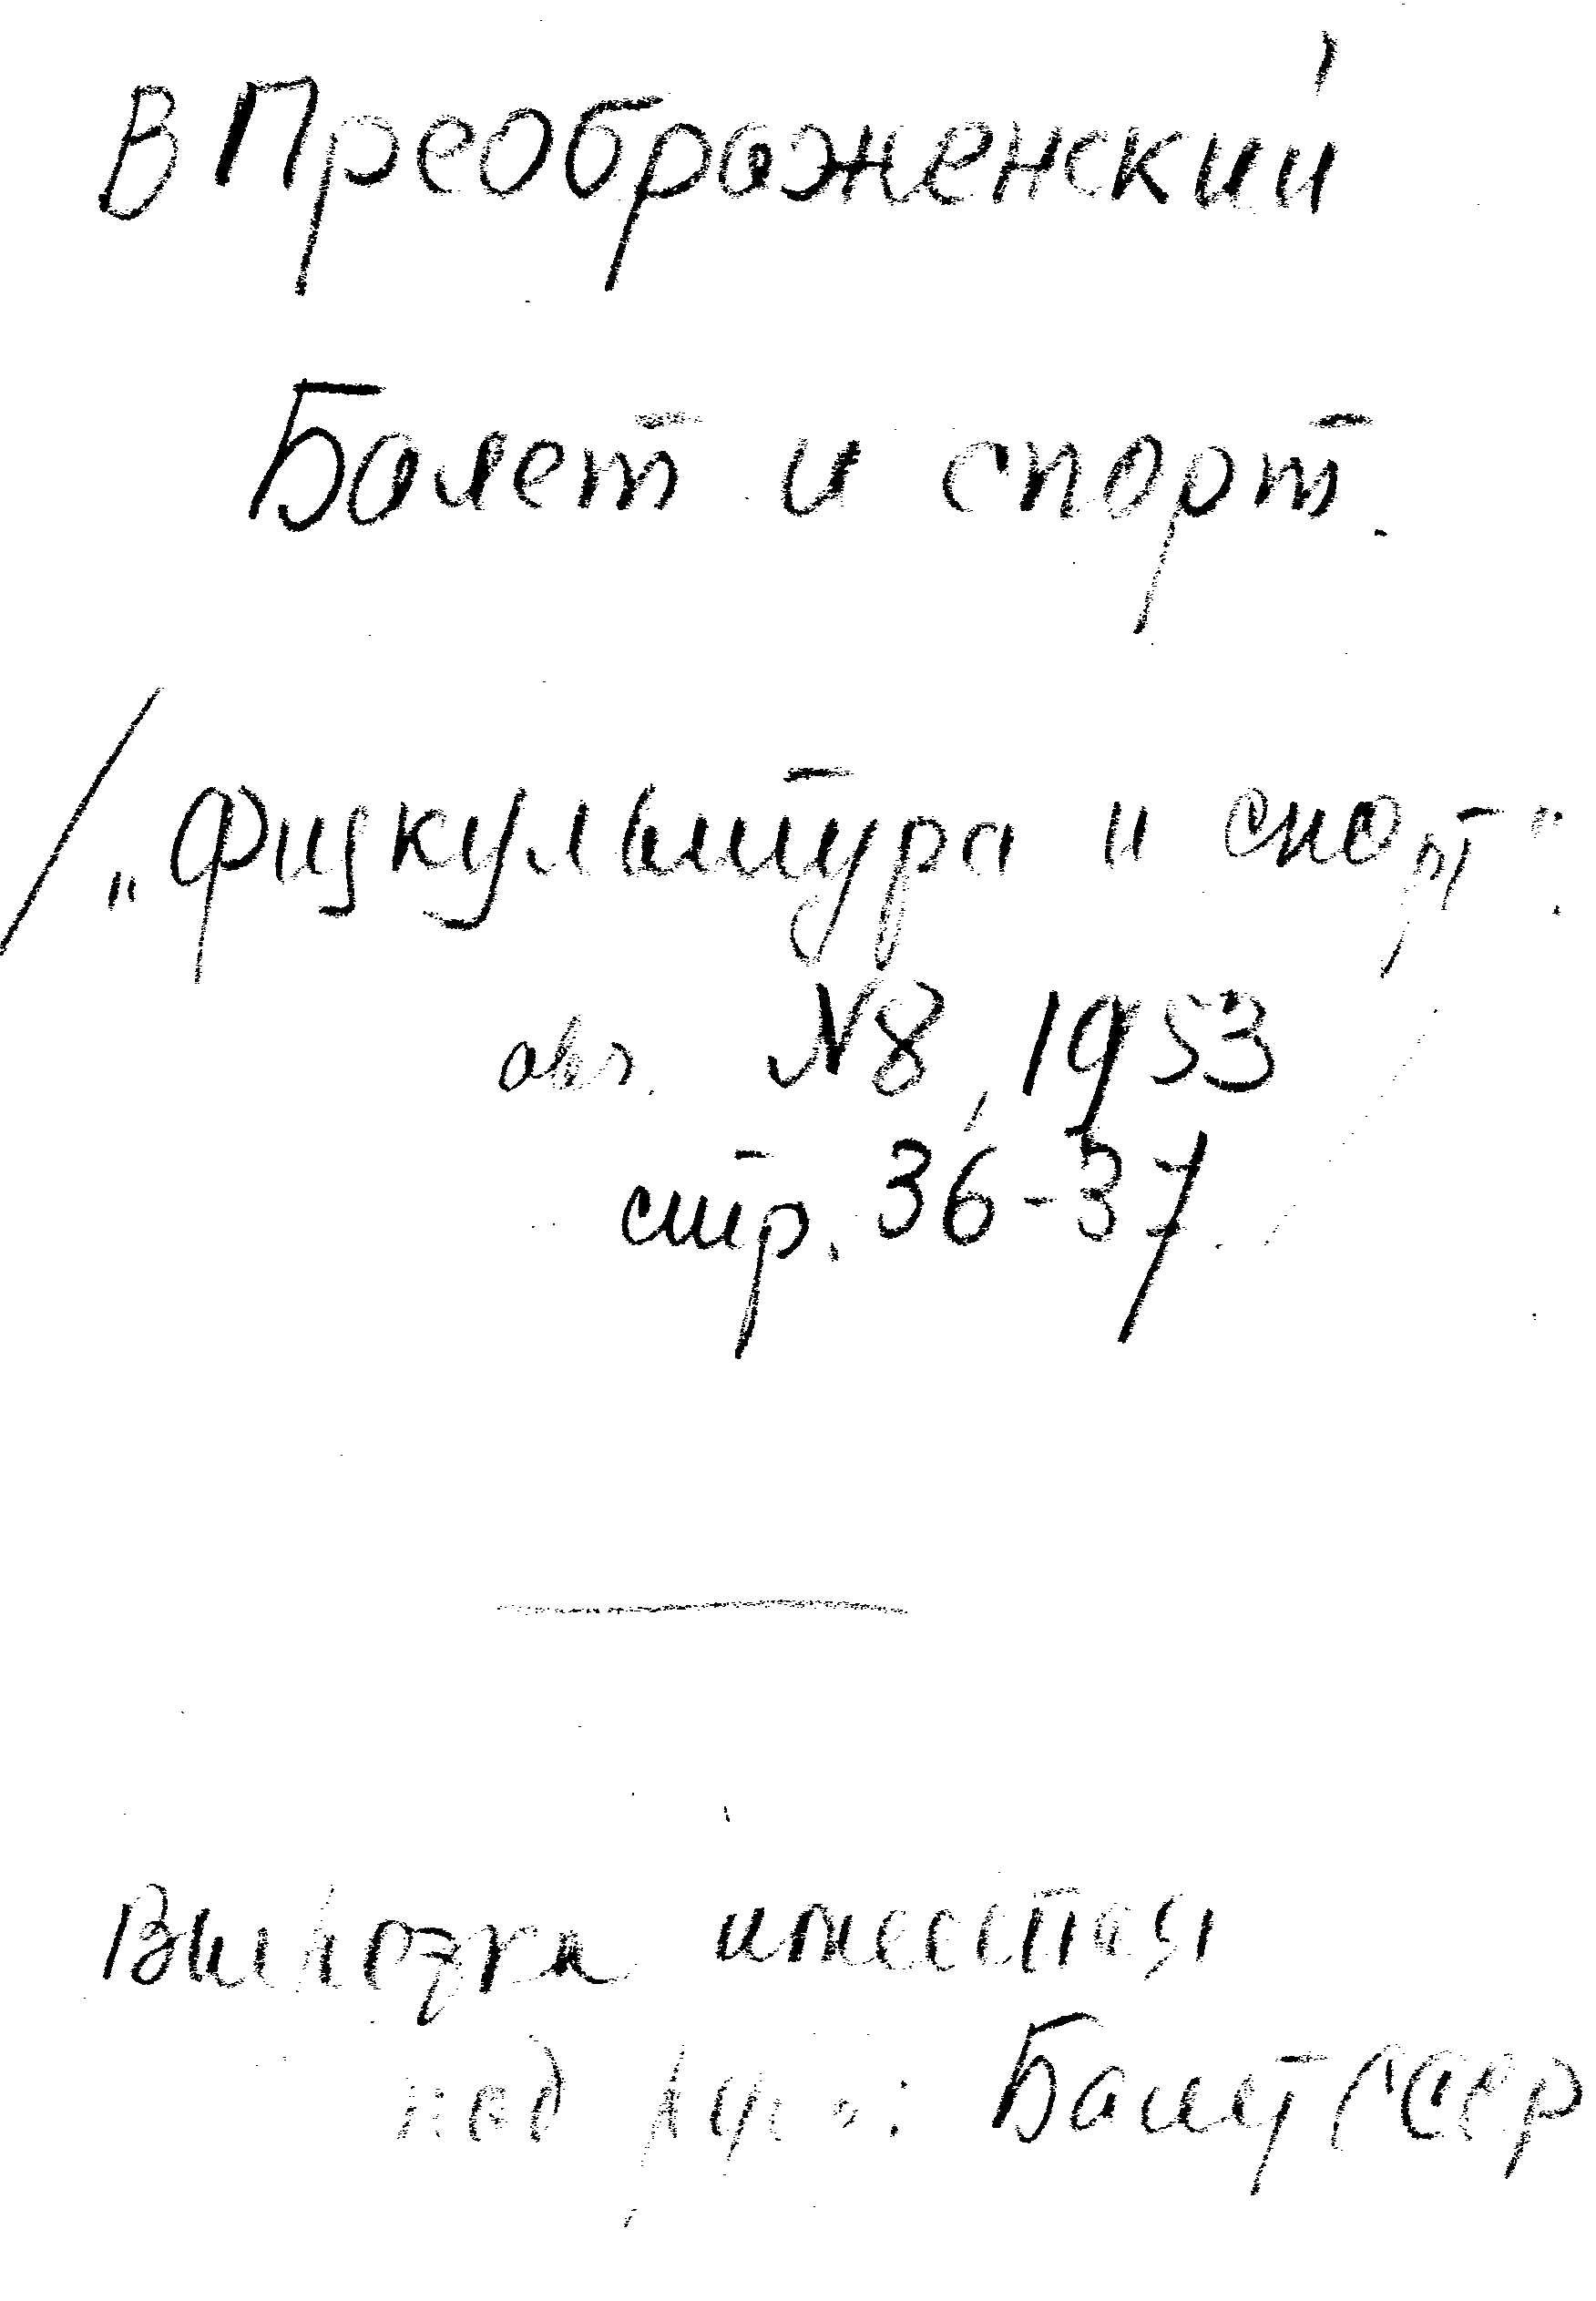 В Преображенский
Балет и спорт.
/ „Физкультура и спорт".
авг. N8, 1953
стр. 36-37.
Вырезка имеется
под рубр.: Балет СССР